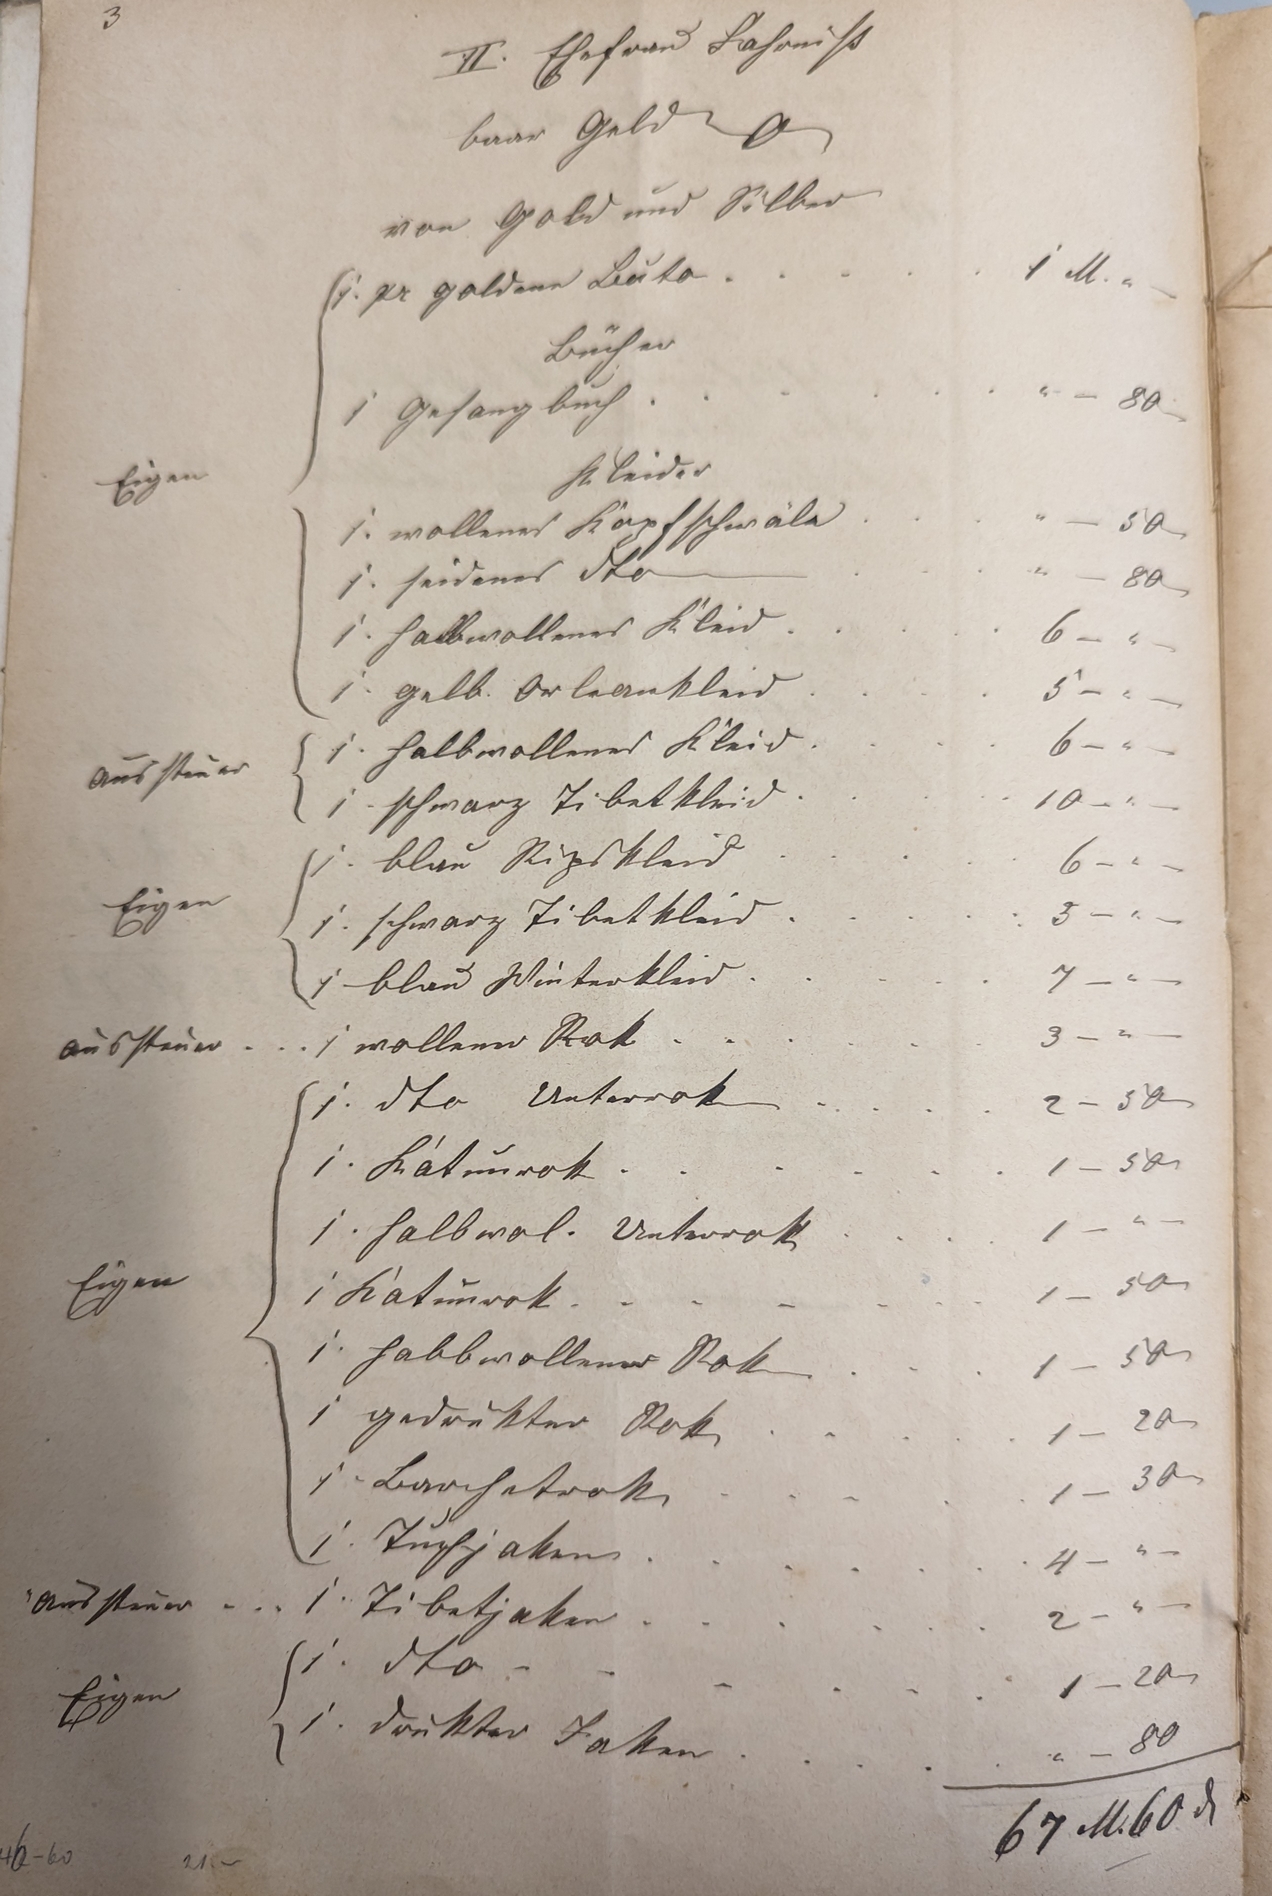 3
II. Ehefrau Fahrniß
baar Geld 0
von Gold und Silber
1. pr goldene Buto . . . . . . 1 M. " –
Bücher
1 Gesangbuch . . . . . . . " – 80
Eigen
Kleider
1. wollenes Kopfschwäle . . . " – 50
1. seidenes dto — . . . " – 80
1. halbwollenes Kleid . . . . . 6 – " –
1. gelb. Orleankleid . . . . 5 – " –
Aussteuer 1. halbwollenes Kleid . . . . 6 – " –
1. schwarz Tibetkleid . . . . . 10 – " –
1. blau Ripskleid . . . . . 6 – " –
Eigen 1. schwarz Tibetkleid . . . . . 5 – " –
1 blau Winterkleid . . . . . 7 – " –
Aussteuer . . . 1 wollener Rok . . . . . . 3 – " –
1. dto Unterrok . . . . 2 – 50
1. Katunrok . . . . . . . 1 – 50
1. halbwol. Unterrok . . . . 1 – " –
Eigen 1 Katunrok . . . . . . . 1 – 50
1. halbwollener Rok . . . 1 – 50
1 gedrukter Rok . . . . . . 1 – 20
1. Barchetrok . . . . . 1 – 30
1. Tuchjaken . . . . . . . 4 – " –
Aussteuer . . . 1. Tibetjaken . . . . . . 2 – " –
1. dto . . . . . . . 1 – 20
Eigen 1. drukter Jaken . . . . . " – 80
67 M. 60 ₰
46–60 21.–